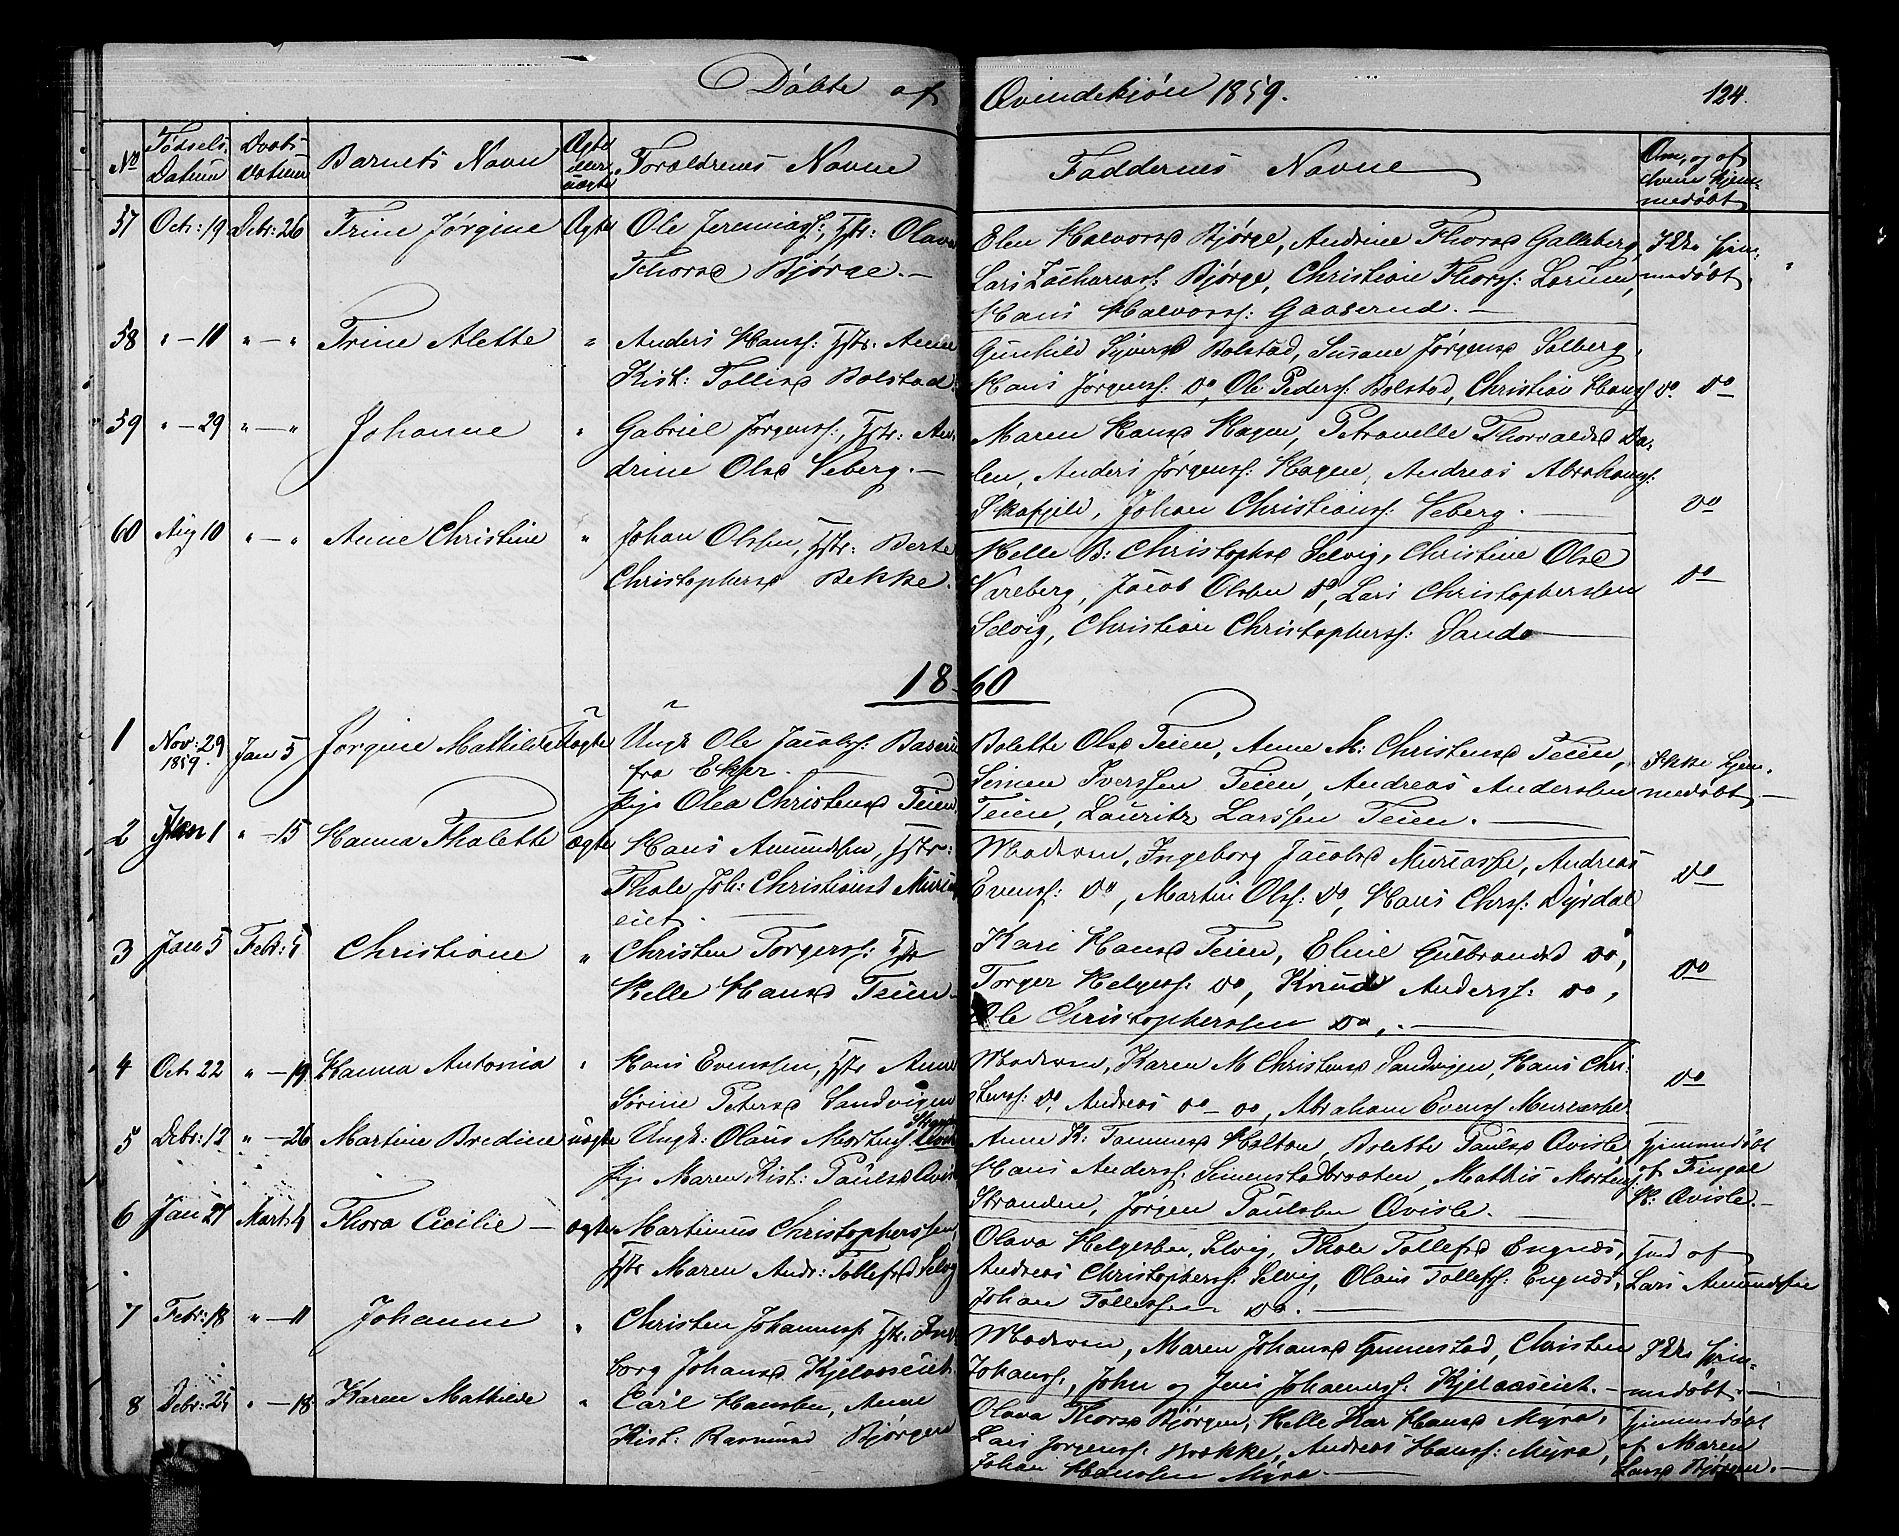 Döbte af Qvindekjön 1859. 124.
No Fødsels Datum Daabs Datum Barnets Navn Ægte eller uægte Forældrenes Navne Faddernes Navne Om, og af hvem hjemmedöbt
57 Oct: 19 Debr: 26 Trine Jørgine Ægte Ole Jeremiasf:, Hstr: Olava
Thorsd Bjørge. —
Elen Halvorsd Bjørge, Andrine Thorsd Galleberg,
Lars Zachariasf: Bjørge, Christian Thorsf: Lerum,
Hans Halvorsf: Gaaserud. —
Ikke hjemmedöbt
58 " — 10 " — " Trine Alette " Anders Hansf: Hstr: Anne
Kist: Tollefsd Bolstad.
Gunhild Syversd Bolstad, Susane Jørgensd Solberg,
Hans Jørgensf: do, Ole Pedersf: Bolstad, Christian Hansf do. do
59 " — 29 " — " Johanne " Gabriel Jørgensf:, Hstr: An-
drine Olsd Seberg. —
Maren Hansd Hagen, Petronelle Thorvaldsd Da-
len, Anders Jørgensf: Hagen, Andreas Abrahamsf:
Skafjeld, Johan Christiansf: Seberg. —
do
60 Aug 10 " — " Anne Christine " Johan Olsen, Hstr: Berte
Christophersd Bekke.
Helle B: Christophsd Selvig, Christine Olsd
Vareberg, Jacob Olsen do, Lars Christophersen
Selvig, Christian Christophersf: Sande —
do
1860
1 Nov: 29 1859. Jan 5 Jørgine Mathilde Uægte Ungk Ole Jacobsf:
fra Eker. —
Pige Olea Christensd Teien
Bolette Olsd Teien, Anne M: Christensd Teien,
Simen Iverssen Teien, Andreas Anderssen
Teien, Lauritz Larssen Teien. —
Ikke hjemmedöbt —
2 Jan 1 " — 15 Hanna Thalette ægte Hans Amundsen, Hstr:
Thale Joh: Christiansd
eiet. —
Moderen, Ingeborg Jacobsd Muraasse, Andreas
Evensf: do, Martin Olsf: do, Hans Chrsf: Dyrdal
do
3 Jan 5 Febr: 5 Christiane " Christen Torgersf: Hstr
Helle Hansd Teien —
Kari Hansd Teien, Eline Gulbrandsd do,
Torger Helgesf: do, Knud Andersf: do,
Ole Christopherssen do, . —
do
4 Oct 22 " — 19 Hanna Antonia " Hans Evenssen, Hstr Anne
Sørine Petersd Sandvigen
Moderen, Karen M Christensd Sandvigen, Hans Chri-
stensf: do, Andreas do — do, Abraham Evensf Muraasse
do
5 Debr: 12 " — 26 Martine Bredine uægte Ungk: Olaus Mortensf
Pige Maren Kist: Paulsd
Anne K: Tommesd Holton, Bolette Paulsd Qvisle
Hans Andersf: Simenstadbraaten, Mathis Mortensf
Stranden, Jörgen Paulsen Qvisle. —
Hjemmedöbt
af Fingal
P: Qvisle. —
6 Jan 21 Marts 4 Thora Cecilie — ægte Martinus Christopherssen,
Hstr Maren Andr: Tollefsd Selvig
Olava Helgesen, Selvig, Thale Tollefsd Engnæs,
Andreas Christophersf: Selvig, Olaus Tollefsf: Engnæs,
Johan Tollefssen do. —
hmd af
Lars Amundssen
7 Febr: 18 " — 11 Johanne " Christen Johannesf Hstr: Inge-
borg Johansd Kjelaaseiet.
Moderen, Maren Johansd Grimestad, Christen
Johansf:, John og Jens Johannesf: Kjelaaseiet. —
Ikke hjemmedöbt. —
8 Debr: 25 " — 18 Karen Mathilde " Carl Hansen, Anne
Kist: Rasmusd Bjørgen
Olava Thorsd Bjørgen, Helle Kar Hansd Myra,
Lars Jørgensf: Brække, Andreas Hansf: Myra,
Johan Hanssen Myra. —
Hjemmedöbt
af Maren
Larsd Bjørgen. —